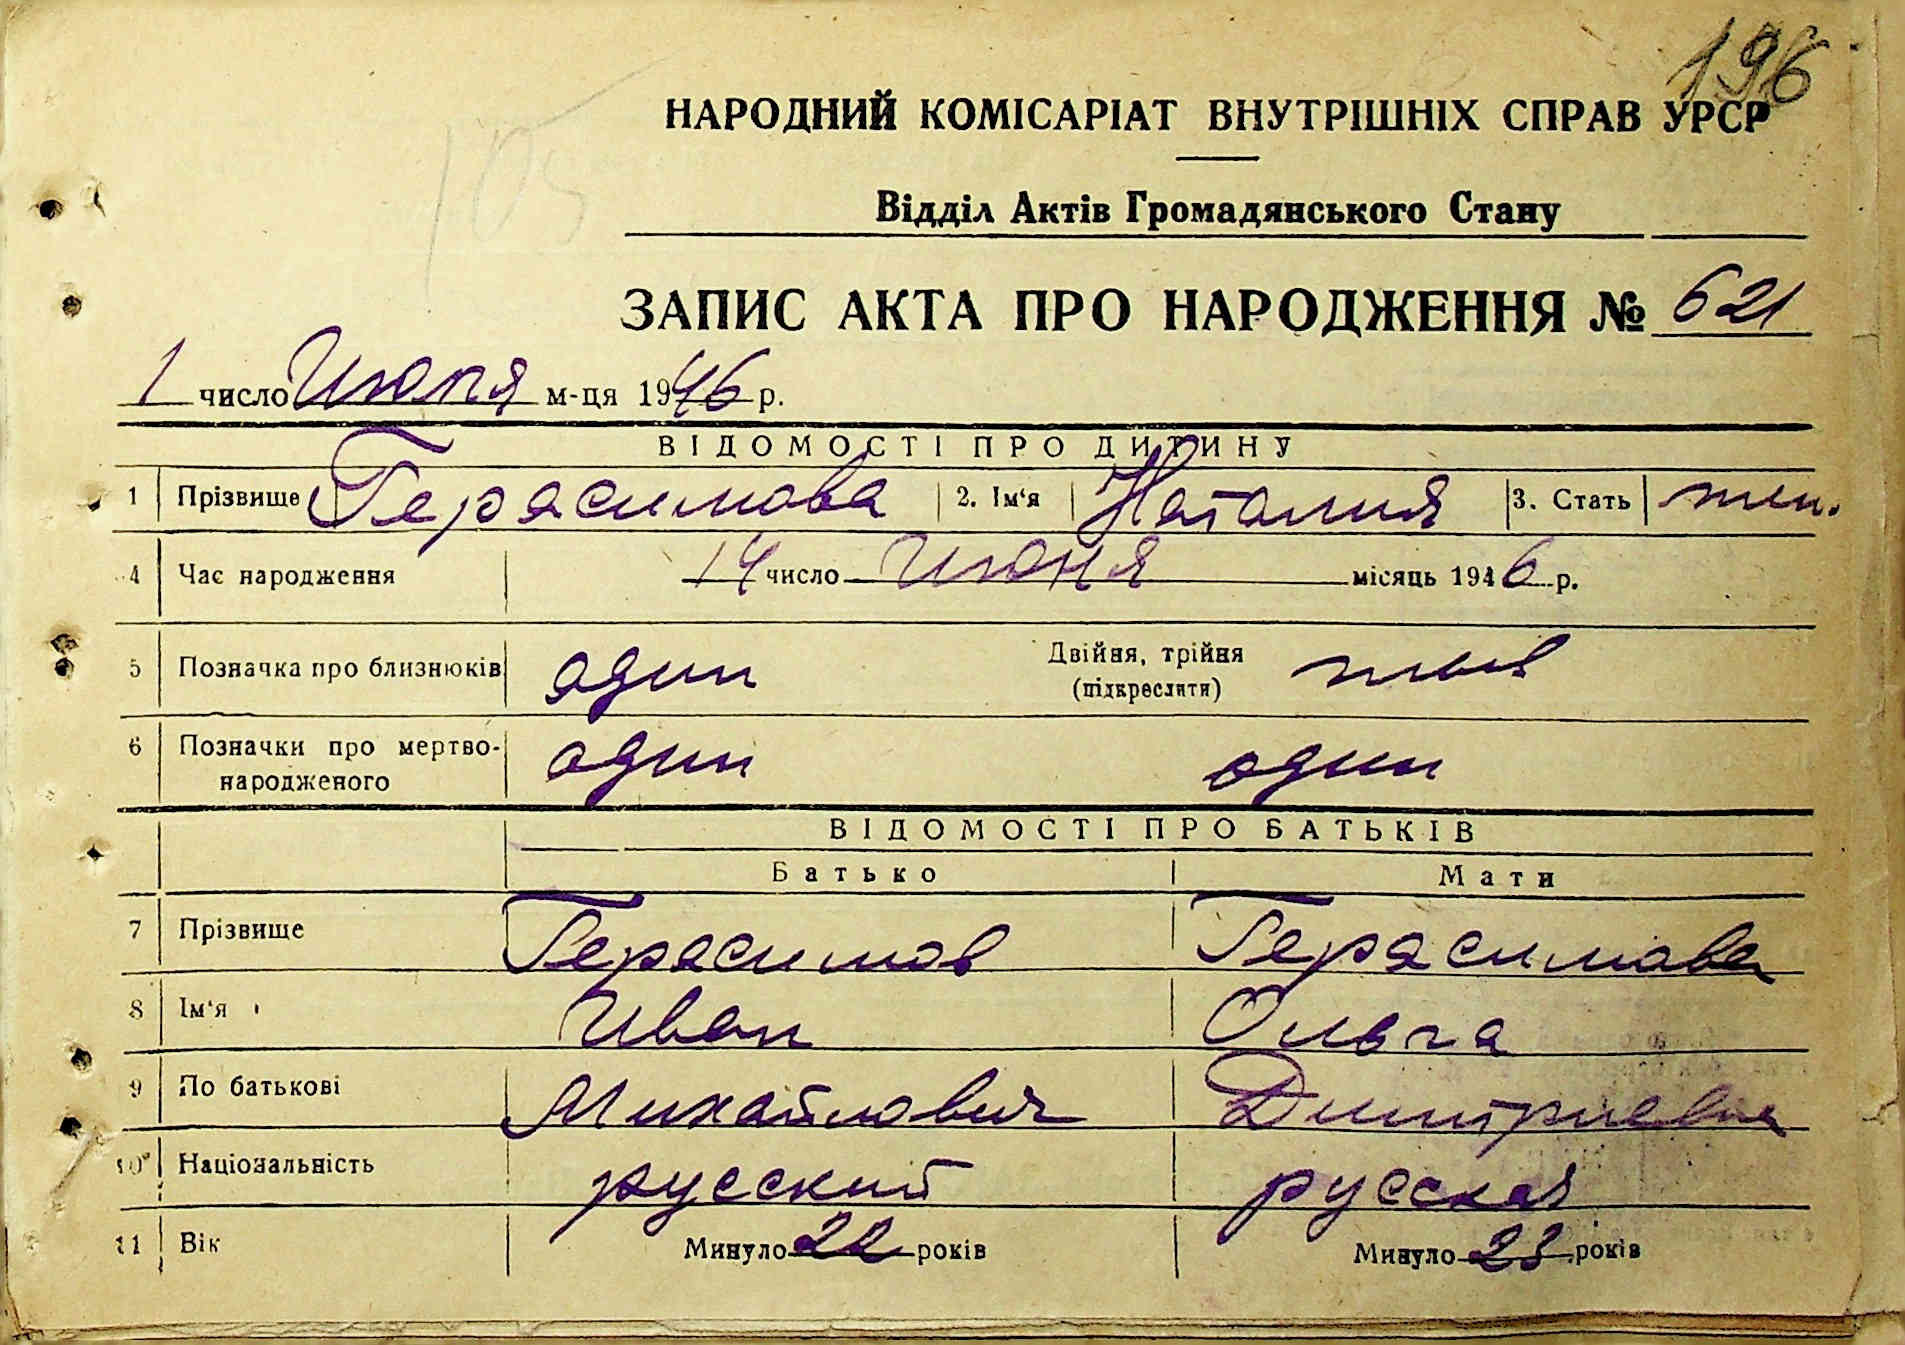 196
105
НАРОДНИЙ КОМІСАРІАТ ВНУТРІШНІХ СПРАВ УРСР
Відділ Актів Громадянського Стану
ЗАПИС АКТА ПРО НАРОДЖЕННЯ № 621
1 число Июля м-ця 1946 р.
ВІДОМОСТІ ПРО ДИТИНУ
1 Прізвище Герасимова 2. Ім'я Наталия 3. Стать жен.
4 Час народження 14 число Июня місяць 1946 р.
5 Позначка про близнюків один Двійня, трійня
(підкреслити)
6 Позначки про мертво- один один
народженого
ВІДОМОСТІ ПРО БАТЬКІВ
Батько Мати
7 Прізвище Герасимов Герасимова
8 Ім'я Иван Ольга
9 По батькові Михайлович Дмитриевна
10 Національність русский русская
11 Вік Минуло 22 років Минуло 23 років